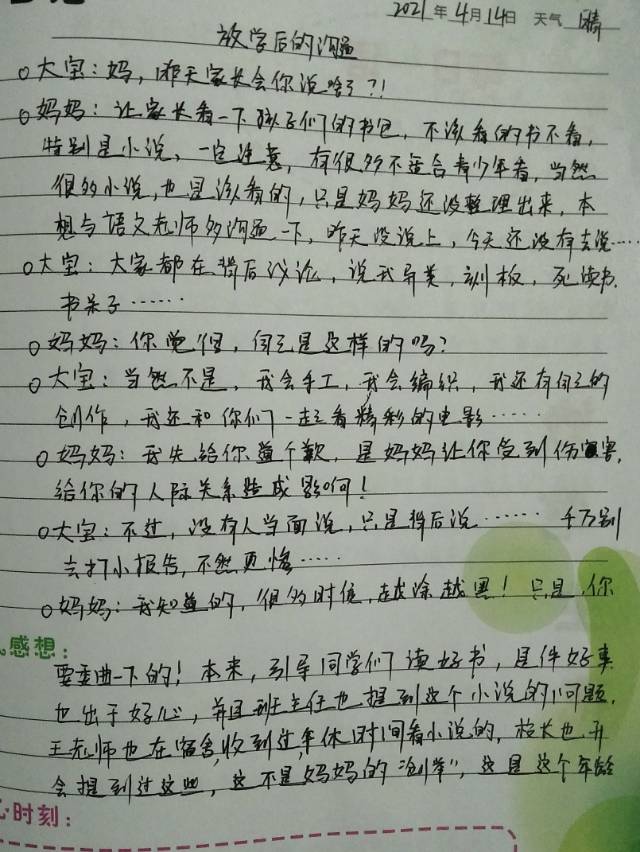 2021年4月14日 天气 晴
放学后的沟通
大宝:妈,昨天家长会你说啥了?!
妈妈:让家长看一下孩子们的书包,不该看的书不看,
特别是小说,一定注意,有很多不适合青少年看,当然
很多小说,也是该看的,只是妈妈还没整理出来,本
想与语文老师多沟通一下,昨天没说上,今天还没有去说……
大宝:大家都在背后议论,说我异类,刻板,死读书,
书呆子……
妈妈:你觉得,自己是这样的吗?
大宝:当然不是,我会手工,我会编织,我还有自己的
创作,我还和你们一起看精彩的电影……
妈妈:我先给你道个歉,是妈妈让你受到伤害,
给你的人际关系造成影响!
大宝:不过,没有人当面说,只是背后说…… 千万别
去打小报告,不然更惨……
妈妈:我知道的,很多时候,越涂越黑!只是,你
感想:
要委曲一下的!本来,引导同学们读好书,是件好事
也出于好心,并且班主任也提到这个小说的问题,
王老师也在宿舍,收到过午休时间看小说的,校长也开
会提到过这些,这不是妈妈的"创举",这是这个年龄
心时刻: